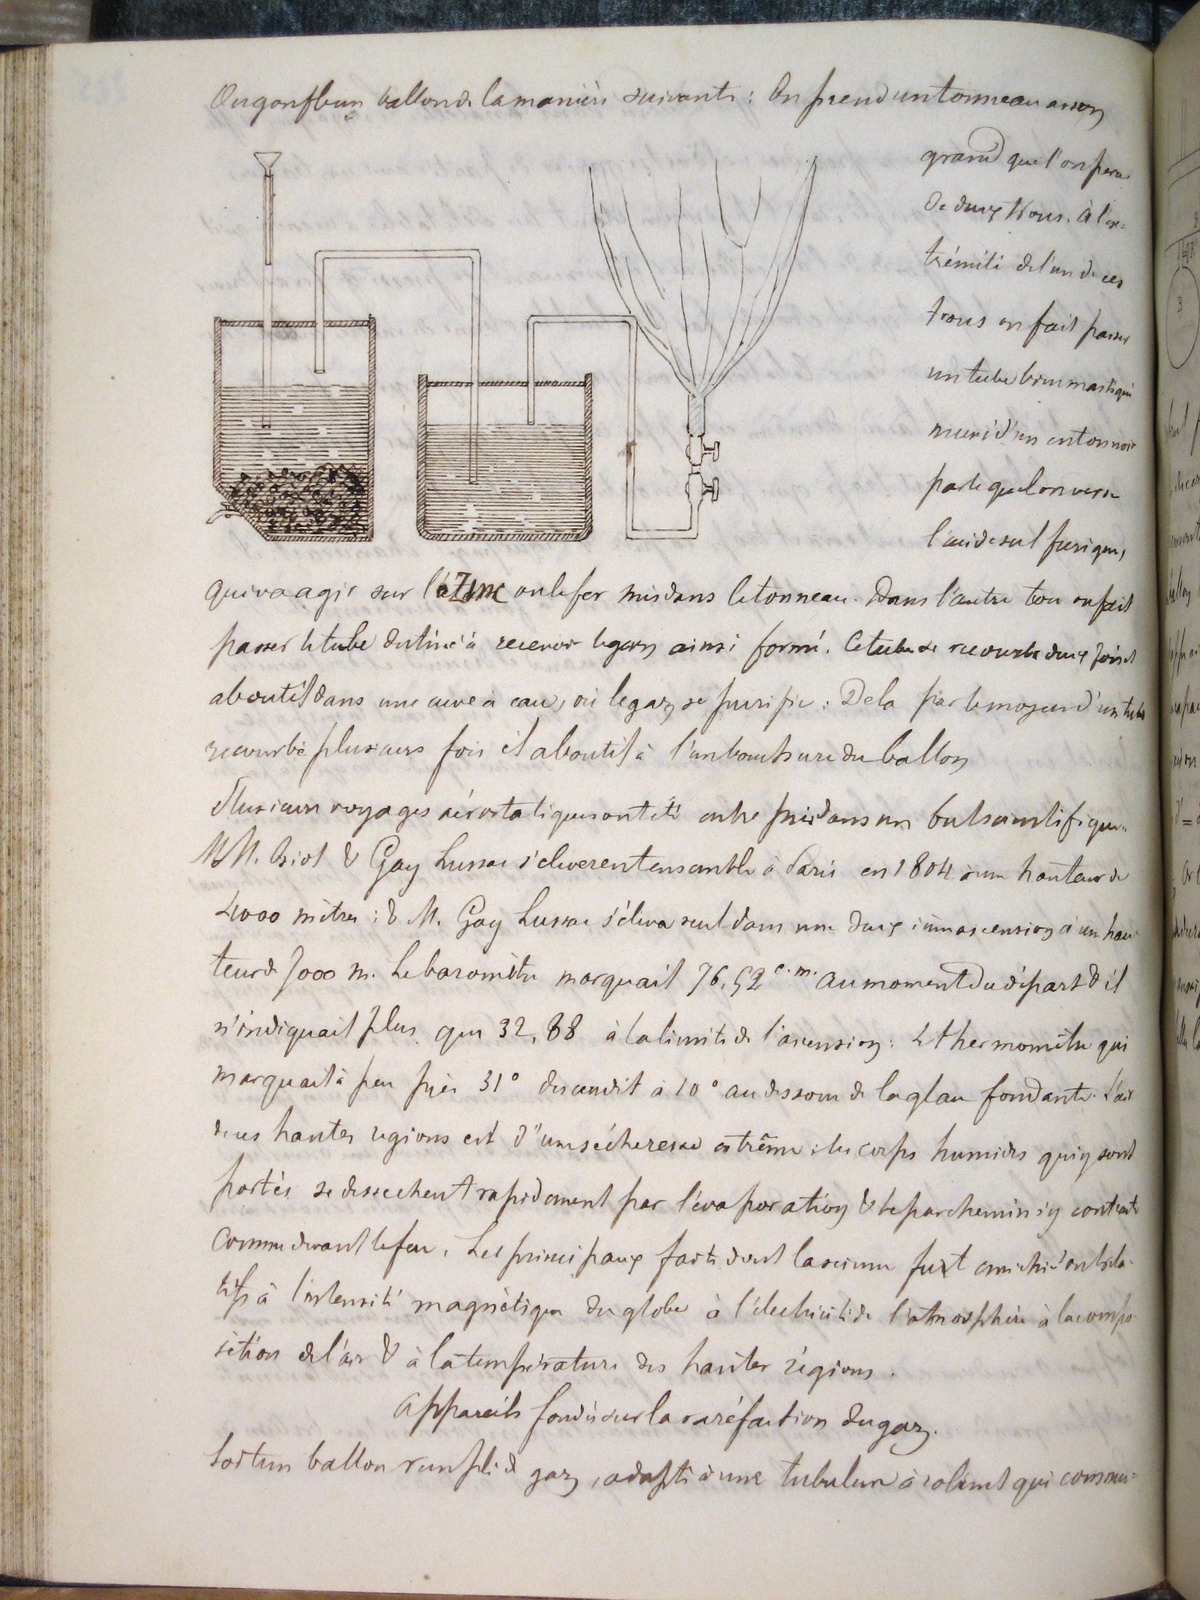 On gonfle un ballon de la manière suivante : On prend un tonneau assez
grand que l'on perce
de deux trous. à l'ex-
trémité de l'un de ces
trous on fait passer
un tube bien mastiqué
muni d'un entonnoir
par lequel on verse
l'acide sulfurique,
qui va agir sur le Zinc ou le fer mis dans le tonneau. Dans l'autre trou on fait
passer le tube destiné à recevoir le gaz ainsi formé. Ce tube se recourbe deux fois et
aboutit dans une cuve à eau, où le gaz se purifie : De la par le moyen d'un tube
recourbé plusieurs fois il aboutit à l'embouchure du ballon
Plusieurs voyages aérostatiques ont été entrepris dans un but scientifique.
MM. Biot & Gay Lussac s'élevèrent ensemble à Paris en 1804 à une hauteur de
4000 mètres : & M. Gay Lussac s'éleva seul dans une ascension à un hau-
teur de 7000 m. Le baromètre marquait 76,52 c.m. au moment du départ & il
n'indiquait plus que 32,88 à la limite de l'ascension : Le thermomètre qui
marquait à peu près 31° descendit à 10° au dessous de la glace fondante. L'air
de ces hautes regions est d'une sécheresse extrême : les corps humides qui y sont
portés se dessechent rapidement par l'évaporation & le parchemin s'y contracte
comme devant le feu. Les principaux faits dont la science fut enrichie ont rela-
tifs à l'intensité magnétique du globe à l'électricité de l'atmosphère à la compo-
sition de l'air & à la température des hautes régions.
Appareils fondés sur la raréfaction du gaz.
Soit un ballon rempli de gaz, adapté à une tubulure à robinet qui commu-